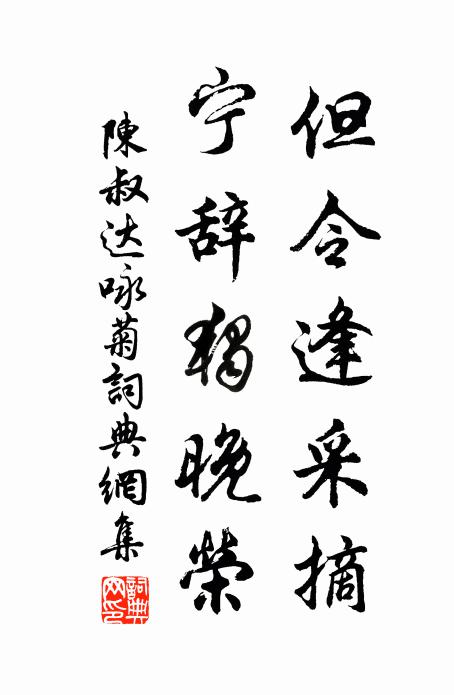 但令逢采摘
宁辞獨晚榮
陳叔达咏菊詞典網集
詞典网印